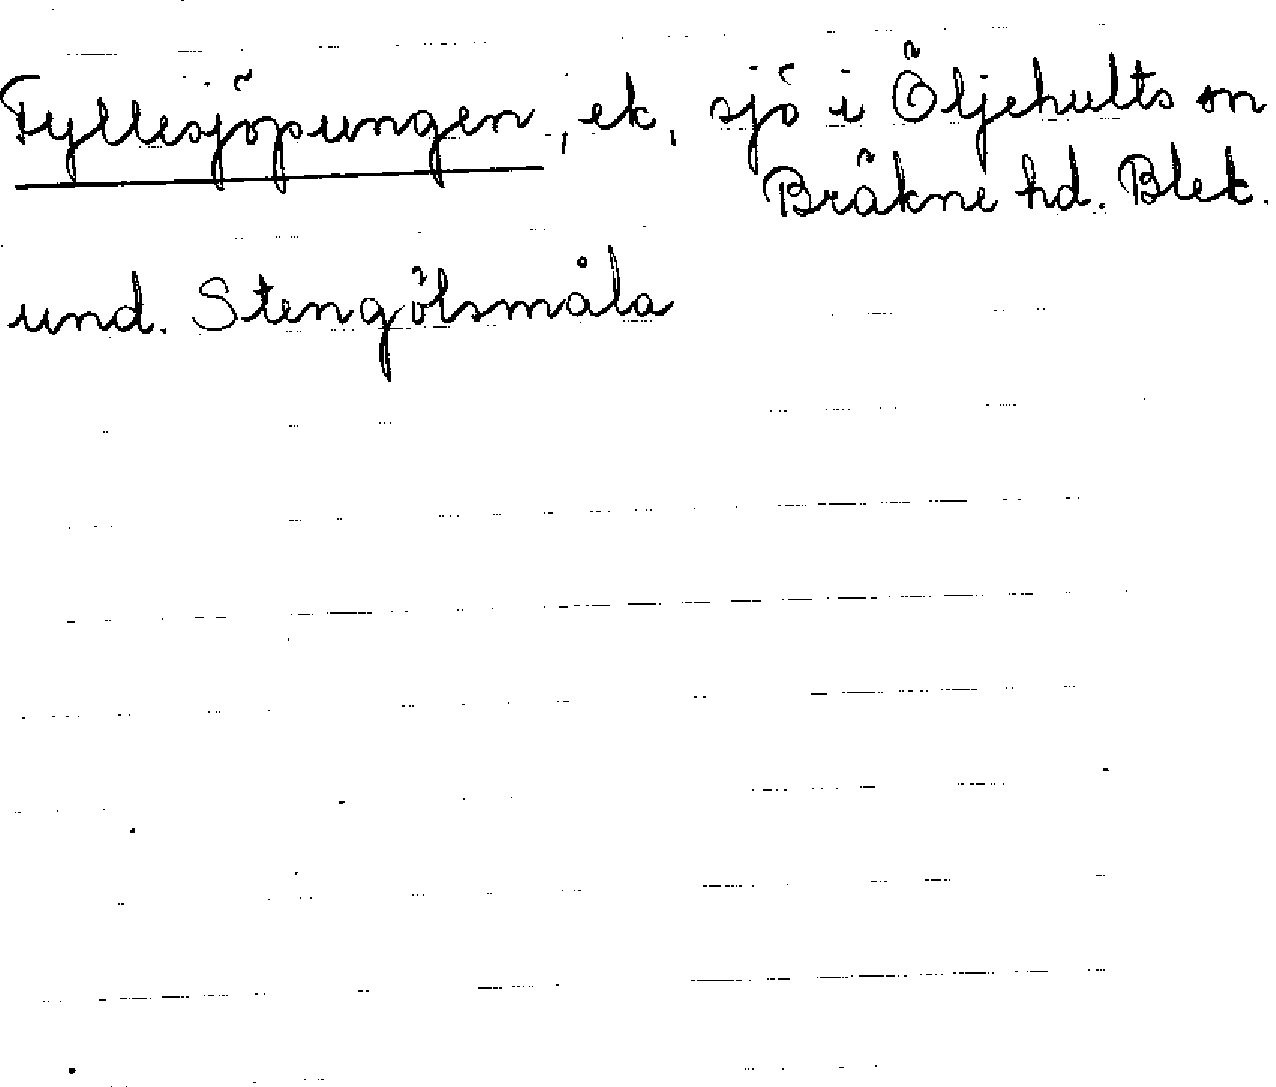 Fyllesjöpungen, ek, sjö i Öljehults sn
Bräkne hd. Blek.
und. Stengölsmåla